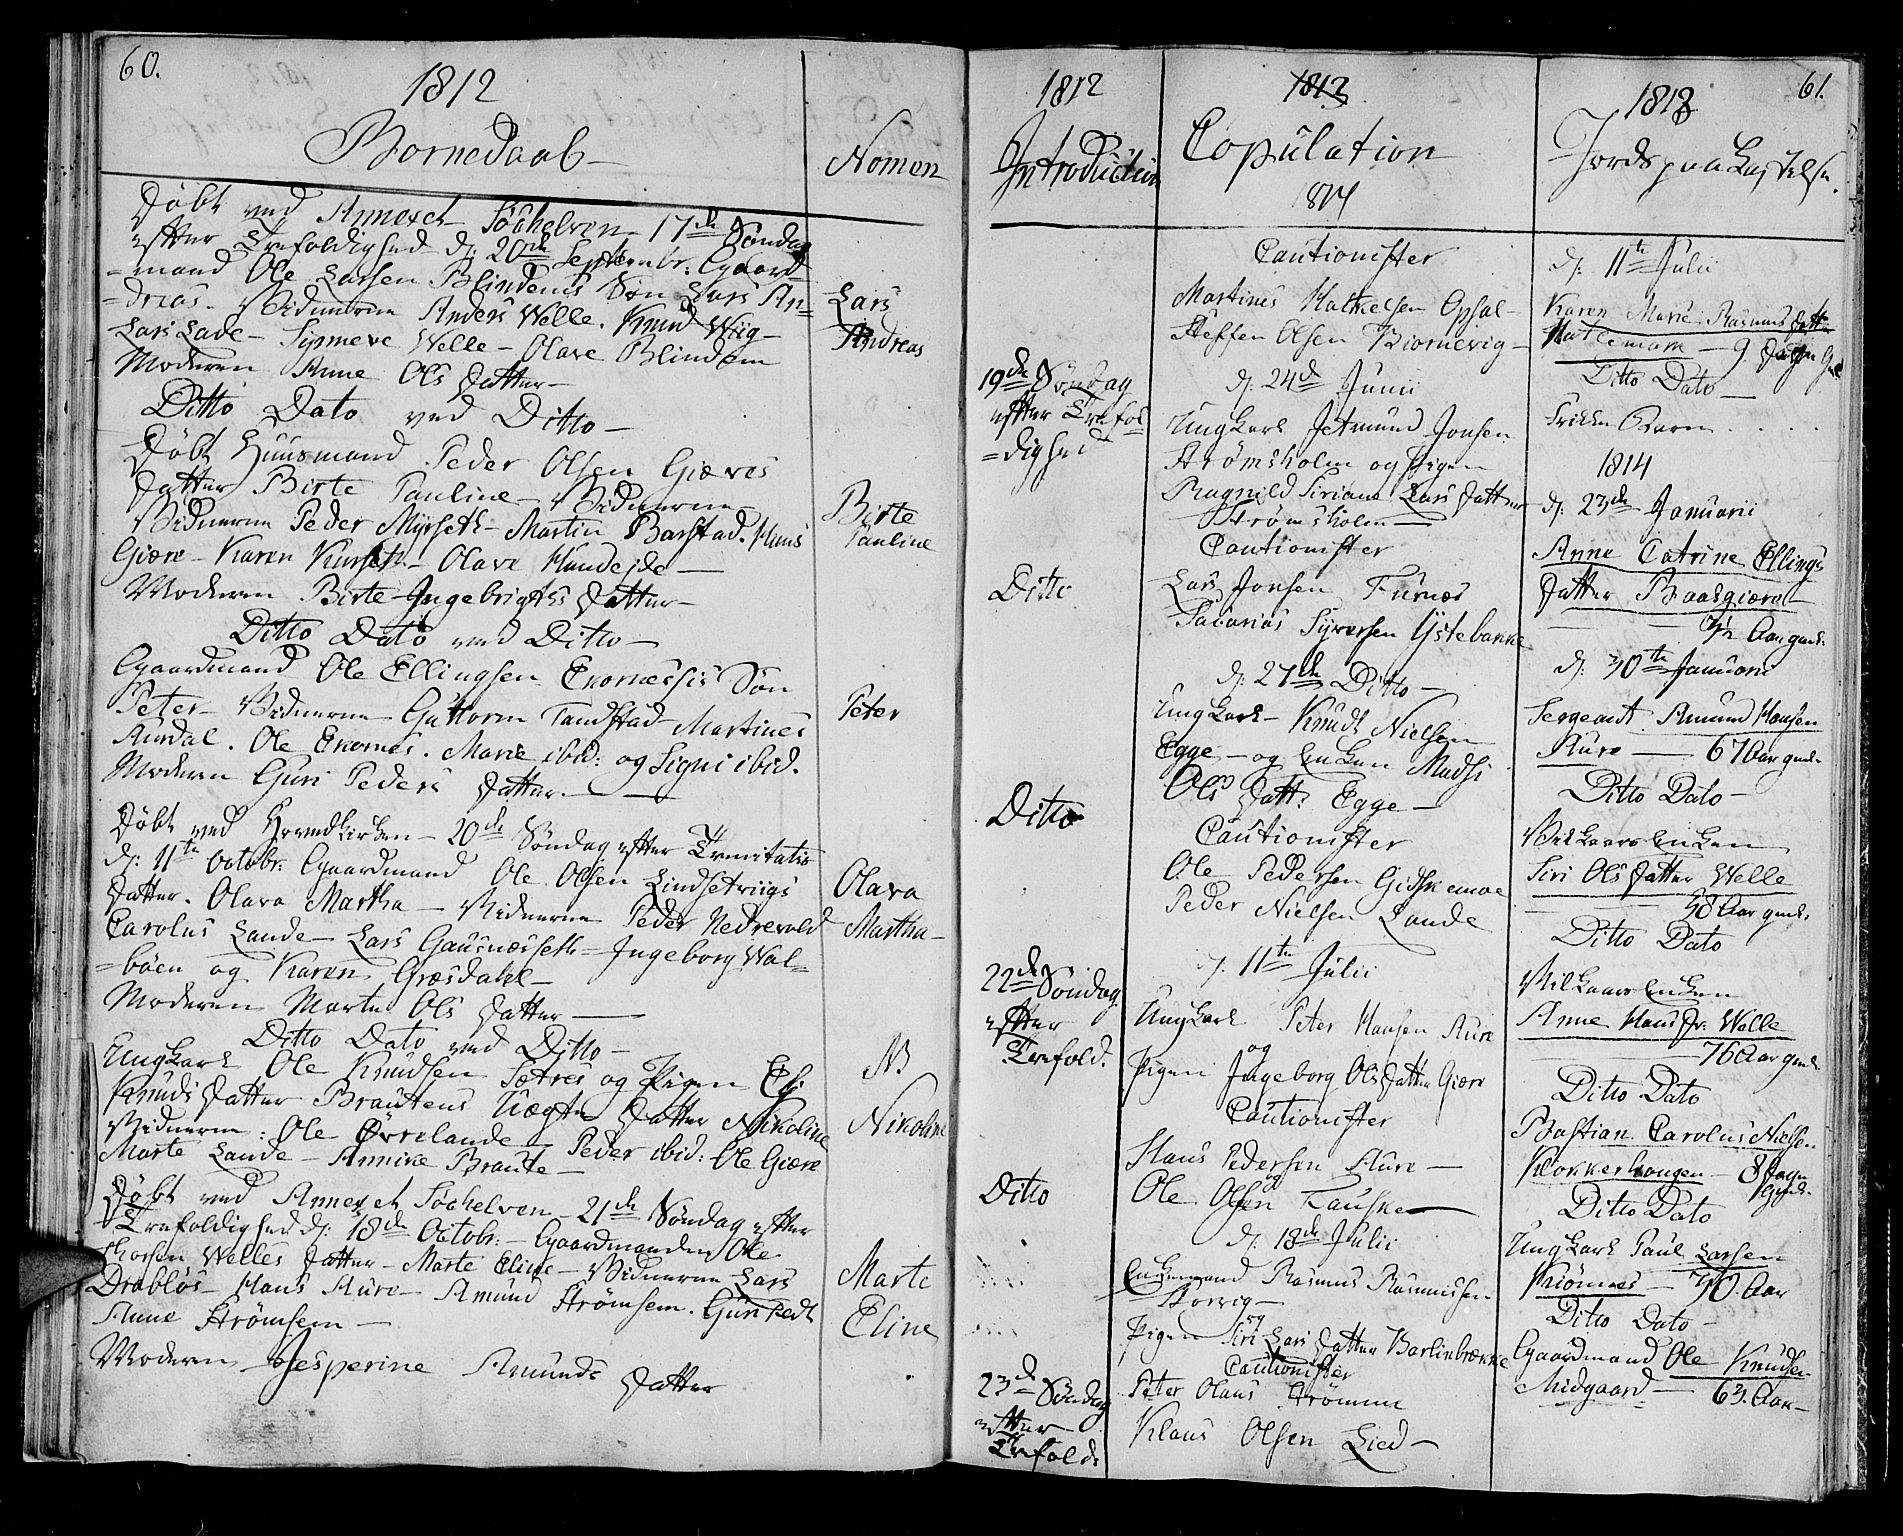 60.
1812
Bornedaab
Nomen
Døbt ved Annexet Söchelven 17de Søndag
efter Trefoldighed dj: 20de Septembr. Gaard
=mand Ole Larsen Blindems Søn Lars An=
=dreas. Vidnerne Anders Welle. Knud Wiig
Lars Lade - Synneve Welle - Olave Blindem
Moderen Anne Ols Datter
Lars
Andreas
Ditto Dato ved Ditto
Døbt Huusmand Peder Olsen Giæres
Datter Birte Pauline - Vidnerne
Vidnerne Peder Myrseth - Martin Barstad. Hans
Giære - Karen Kurseth - Olave Hundejde
Moderen Birte Ingebrigts Datter
Birte
Pauline
Ditto Dato ved Ditto
Gaardmand Ole Ellingsen Ekornessis Søn
Peter - Vidnerne - Guttorm Tandstad Martines
Aurdal. Ole Ekornes. Marie ibid: og Signi ibid.
Moderen Guri Peders Datter.
Peter
Døbt ved Hovedkirken - 20de Søndag efter Trinitatis
dj: 11te Octobr: Gaardmand Ole Olsen Lindsetviigs
Datter. Olava Martha - Vidnerne Peder Nedrevold
Carolus Lande - Lars Gausnæsseth - Ingeborg Wal=
=bøen og Karen Græsdahl
Moderen Marte Ols Datter
Olava
Martha
Ditto Dato ved Ditto
Ungkarl Ole Knudsen Sætres og Pigen
Knuds Datter Brautens Uægte Datter Nikoline
Vidnerne: Ole Øvrelande Peder ibid: Ole Giære
Marte Lande - Annike Braute
N
Nikoline
Døbt ved Annexet Söchelven - 21de Søndag efter
Trefoldighed dj: 18de Octobr. - Gaardmanden Ole
Welles Datter - Marte Eline - Vidnerne Lars
Drabløs - Hans Aure - Amund Strømsem. Guri
Anne Strømsem
Moderen Jesperine Amunds Datter
Marte
Eline
1812
Introduction
19de Søndag
efter Trefol
=dighed
Ditto
Ditto
22de Søndag
efter
Trefold.
Ditto
23de Søndag
efter
Trefold:
1813
Copulation
1814
Cautionister
Martines Opsal
Steffen Olsen Biørnevig
dj: 24de Junii
Ungkarl Jetmund Jonsen
Strømsholm og Pigen
Ragnild Siriane Lars Datter
Strømsholm
Cautionister
Lars Jonsen Furnæs
Syversen Ystebanke
dj: 27de Ditto
Ungkarl Knudt Nielsen
Egge og Enken Madsi
Ols Datt: Egge
Cautionister
Ole Pedersen Gidskemoe
Peder Nielsen Lande
dj. 11te Julii
Ungkarl Peter Hansen Aure
og
Pigen Ingeborg Ols Datter Giære
Cautionister
Hans Pedersen Aure
og
Ole Olsen Tauske
dj: 18de Julii
Enkemand Rasmus Rasmussen
Storvig
og
Pigen Siri Lars Datter
Cautionister
Peter Olaus Strømme
Klaus Olsen Lied
61.
1813
Jordspaakastelse.
dj: 11te Julii
Karen Marie Rasmus Datter
Hatlemark - 9
Ditto Dato
Trillin Barn . . . .
1814
dj: 23de Januarii
Anne Catrine Ellings
Datter Baasgiære
1/2 Aar gml.
dj: 30te Januarii
Sergeant Amund Hansen
Aure - 67 Aar gml.
Ditto Dato
Vilkaars Enken
Siri Ols Datter Welle
58 Aar gml.
Ditto Dato
Vilkaars Enken
Anne Hans Dr. Welle
76 Aar gml.
Ditto Dato
Bastian Carolus Nielsen
Klokkerhougen - 8 Dage
gml.
Ditto Dato
Ungkarl Paul Larsen
- 30. Aar
Ditto Dato
Gaardmand Ole Knudsen
Midgaard - 63. Aar